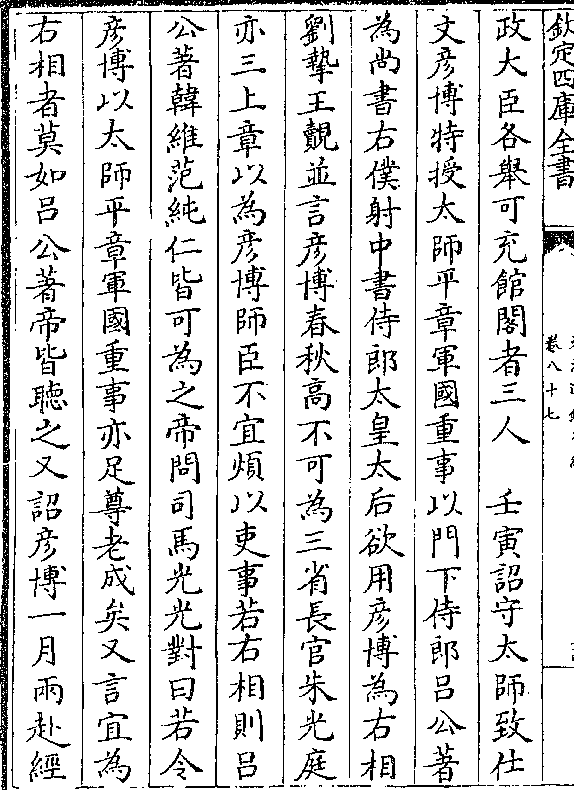 欽定四庫全書
卷八十七
政大臣各舉可充館閣者三人　壬寅詔守太師致仕
文彦博特授太師平章軍國重事以門下侍郎吕公著
為尚書右僕射中書侍郎太皇太后欲用彦博為右相
劉摯王覿並言彦博春秋高不可為三省長官朱光庭
亦三上章以為彦博師臣不宜煩以吏事若右相則吕
公著韓維范純仁皆可為之帝問司馬光光對曰若令
彦博以太師平章軍國重事亦足尊老成矣又言宜為
右相者莫如吕公著帝皆聽之又詔彦博一月兩赴經